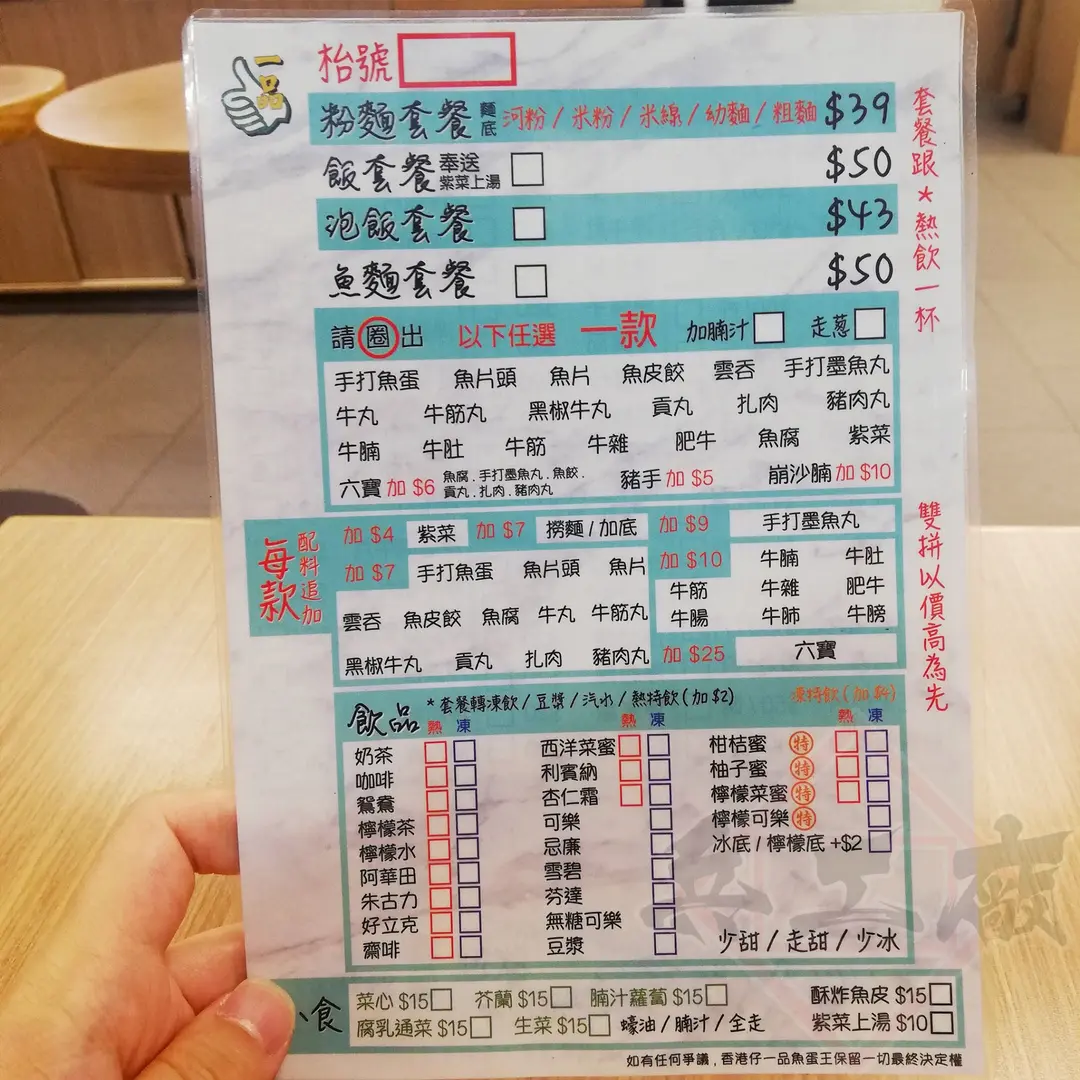 一品
枱號
粉麵套餐 麵底 河粉 / 米粉 / 米線 / 幼麵 / 粗麵 $39
飯套餐 奉送紫菜上湯 $50
泡飯套餐 $43
魚麵套餐 $50
套餐跟*熱飲一杯
請圈出 以下任選 一款 加腩汁 走葱
手打魚蛋 魚片頭 魚片 魚皮餃 雲吞 手打墨魚丸
牛丸 牛筋丸 黑椒牛丸 貢丸 扎肉 豬肉丸
牛腩 牛肚 牛筋 牛雜 肥牛 魚腐 紫菜
六寶 加 $6 魚腐 . 手打墨魚丸 . 魚餃 . 貢丸 . 扎肉 . 豬肉丸 豬手 加 $5 崩沙腩 加 $10
雙拼以價高為先
每款 配料追加
加 $4 紫菜 加 $7 撈麵 / 加底 加 $9 手打墨魚丸
加 $7 手打魚蛋 魚片頭 魚片 加 $10 牛腩 牛肚
牛筋 牛雜 肥牛
雲吞 魚皮餃 魚腐 牛丸 牛筋丸 牛腸 牛肺 牛膀
黑椒牛丸 貢丸 扎肉 豬肉丸 加 $25 六寶
飲品 *套餐轉凍飲 / 豆漿 / 汽水 / 熱特飲 (加 $2) 凍特飲 (加 $4)
熱 凍 熱 凍 熱 凍
奶茶 西洋菜蜜 柑桔蜜 特
咖啡 利賓納 柚子蜜 特
鴛鴦 杏仁霜 檸檬菜蜜 特
檸檬茶 可樂 檸檬可樂 特
檸檬水 忌廉 冰底 / 檸檬底 +$2
阿華田 雪碧
朱古力 芬達
好立克 無糖可樂
齋啡 豆漿 少甜 / 走甜 / 少冰
兵工廠
食
菜心 $15 芥蘭 $15 腩汁蘿蔔 $15 酥炸魚皮 $15
腐乳通菜 $15 生菜 $15 蠔油 / 腩汁 / 全走 紫菜上湯 $10
如有任何爭議 , 香港仔一品魚蛋王保留一切最終決定權